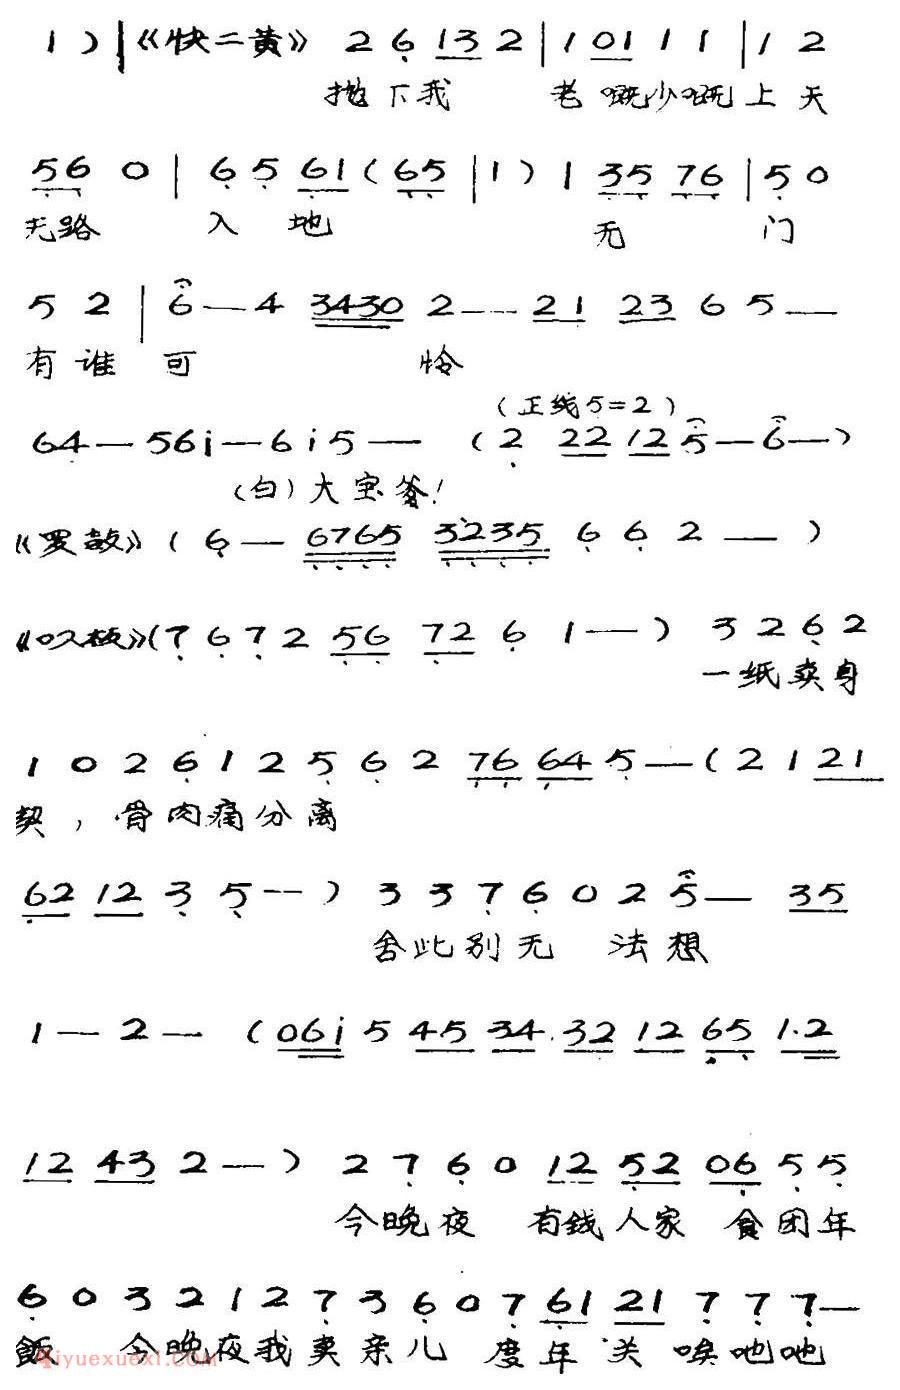 1 ) | 《快二黄》 2 6 13 2 | 1 01 1 1 | 1 2
抛下我 老嘅少嘅上天
56 0 | 6 5 61 ( 65 | 1 ) 1 35 76 | 5 0
无路 入 地 无 门
5 2 | 6 — 4 3430 2 — — 21 23 6 5 —
有谁可 怜
(正线5=2)
64 — 56i — 6 i 5 — ( 2 22 12 5 — 6 — )
(白)大宝爹!
《罗鼓》 ( 6 — 6765 3235 6 6 2 — )
《叹板》 ( 7 6 7 2 56 72 6 1 — ) 3 2 6 2
一纸卖身
1 0 2 6 1 2 5 6 2 76 64 5 — ( 2 1 21
契，骨肉痛分离
62 12 3 5 — — ) 3 3 7 6 0 2 5 — 35
舍此别无 法想
1 — 2 — ( 06i 5 45 34 32 12 65 1·2
12 43 2 — ) 2 7 6 0 12 52 06 5 5
今晚夜 有钱人家 食团年
6 0 3 2 1 2 7 3 6 0 7 61 21 7 7 7 —
飯 今晚夜我卖亲儿 度年关 唉吔吔